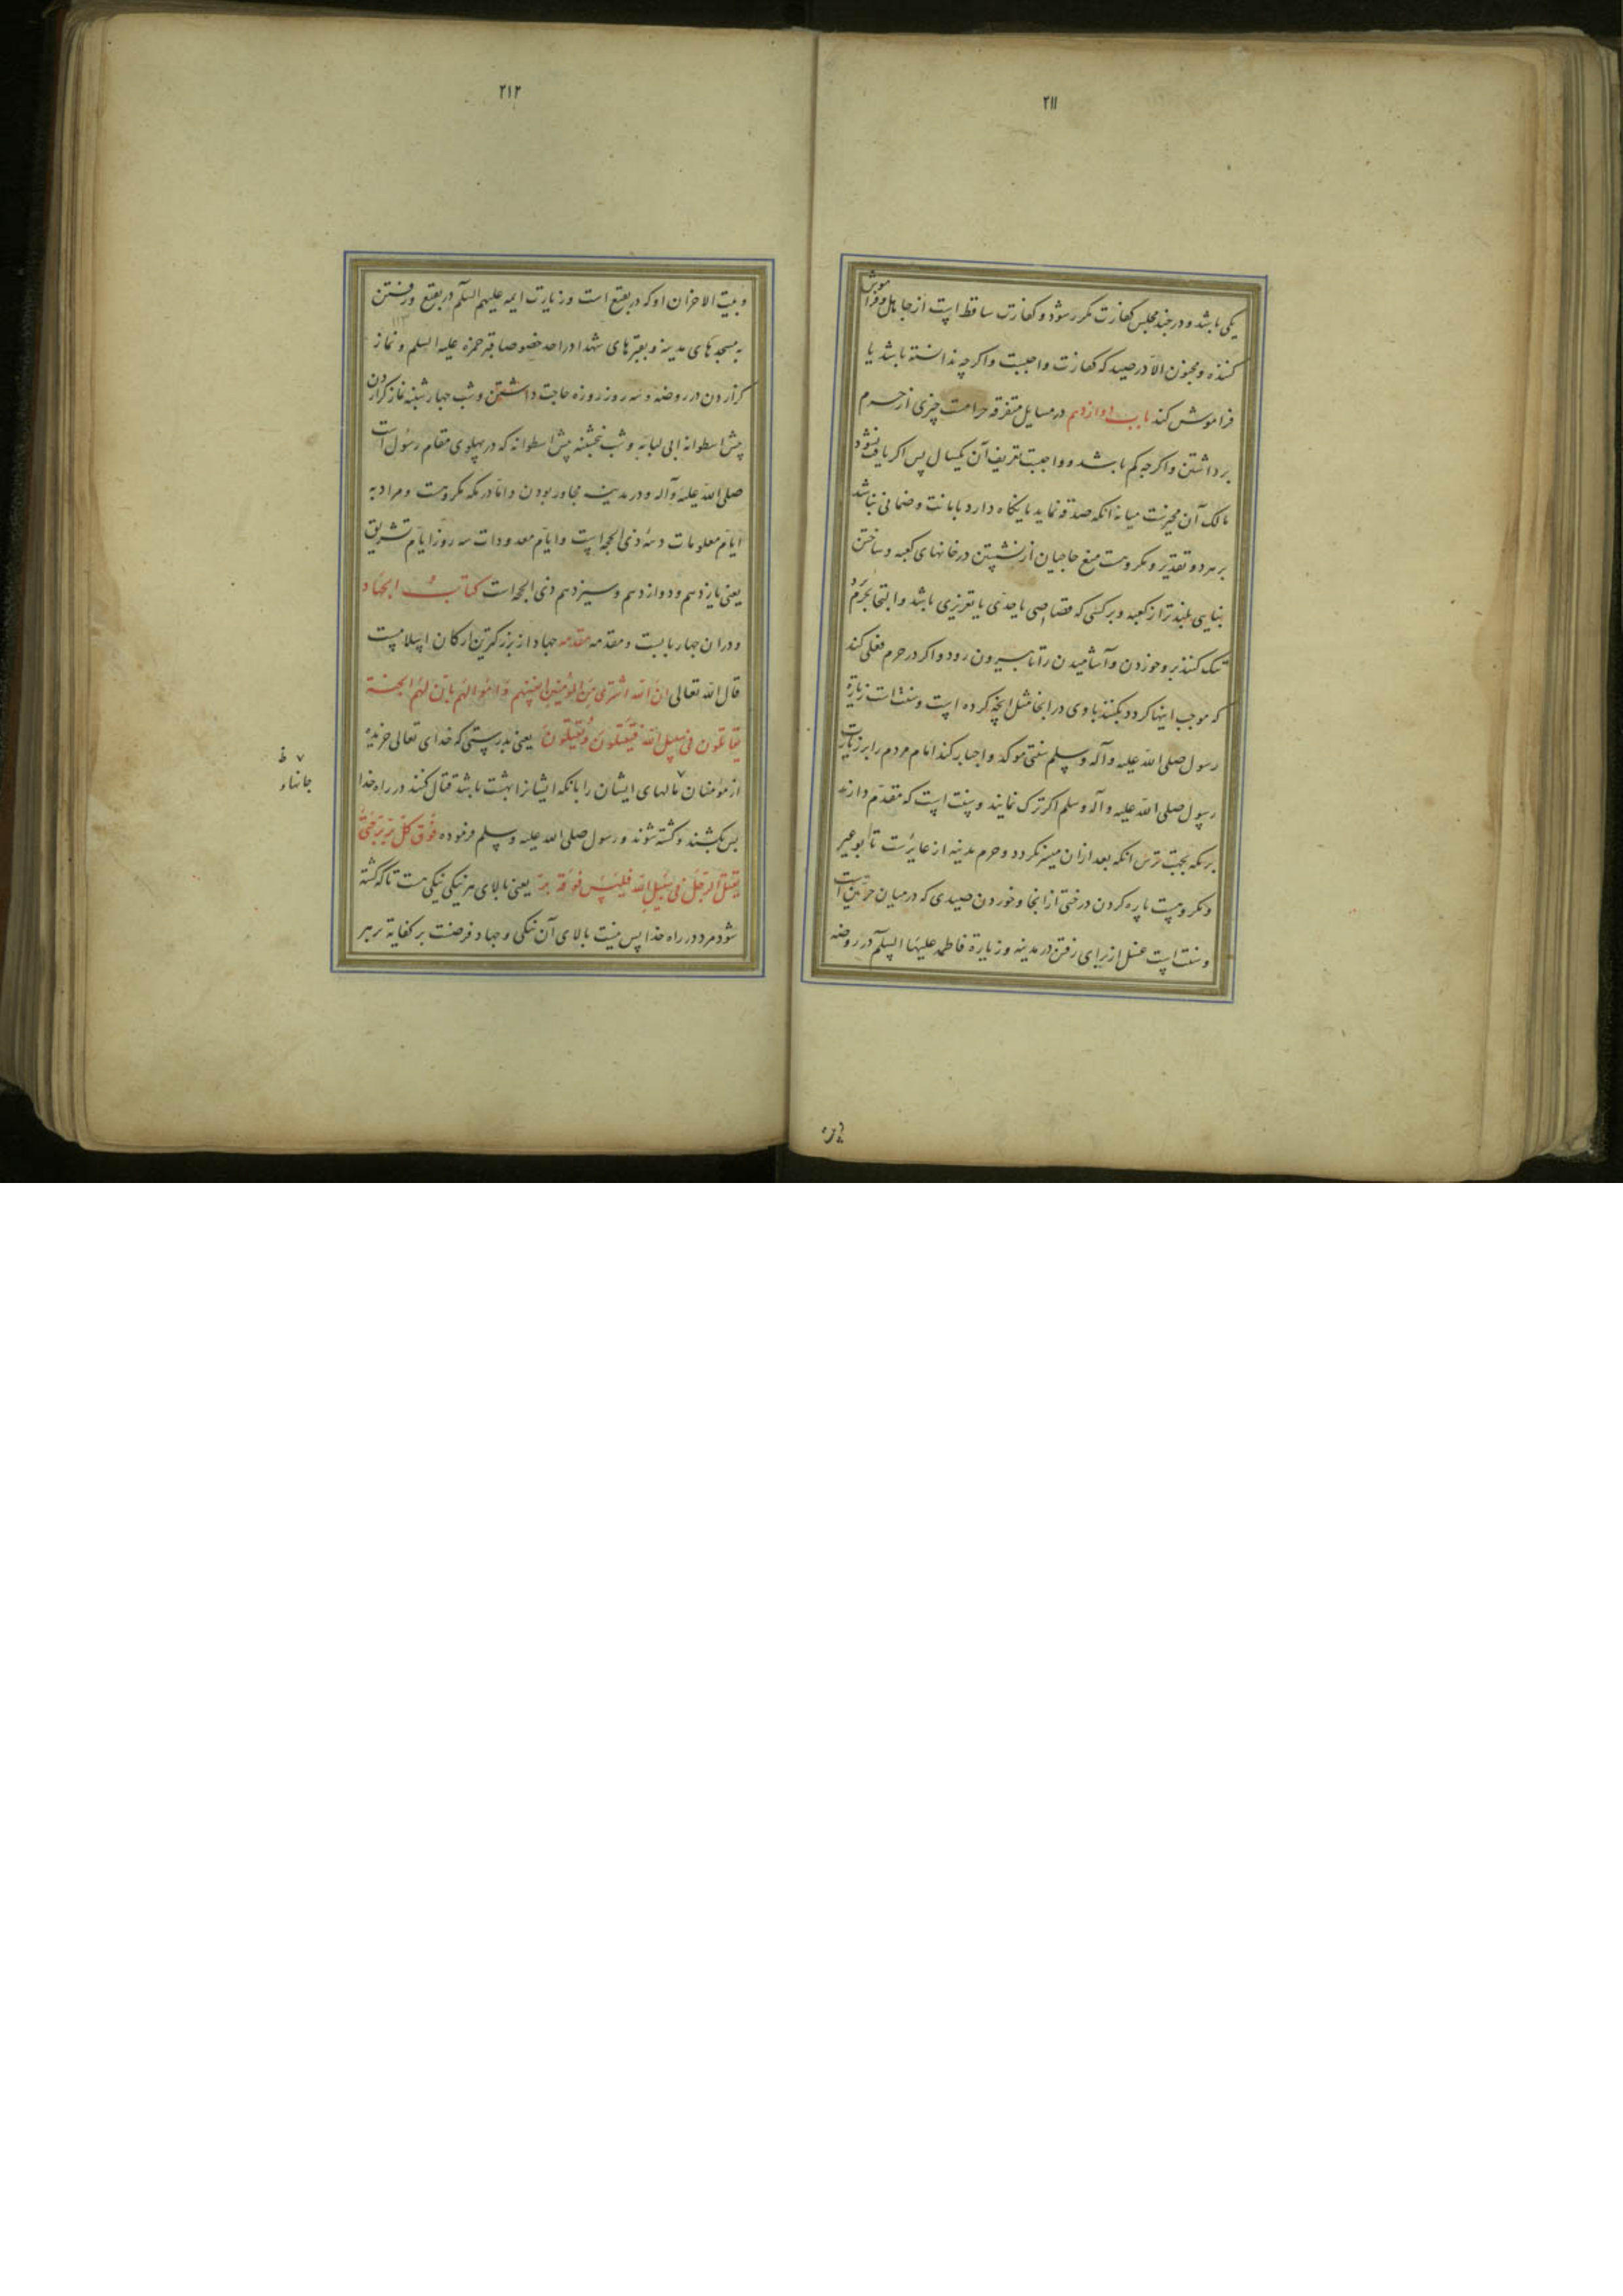 ۲۱۱
یکی باشد و در چند مجلس کفارت مکرر شود و کفارت ساقط است از جاهل و فراموش
کننده و مجنون الا در صید که کفارت واجبست و اگر چه ندانسته باشد یا
فراموش کند باب دوازدهم در مسایل متفرقه حرامست چیزی از حرم
برداشتن و اگر چه کم باشد و واجبست تعریف آن یکسال پس اگر یافت نشود
مالک آن مخیرست میانه انکه صدقه نماید یا نگاه دارد بامانت و ضمانی نباشد
بر هر دو تقدیر و مکروهست منع حاجیان از نشستن در خانهای کعبه و ساختن
بنایی بلندتر از کعبه و بر کسی که قصاصی یا حدی یا تعزیری باشد و التجا بحرم برد
تنک کنند بر و خوردن و آشامیدن را تا بیرون رود و اگر در حرم فعلی کند
که موجب اینها کردد بکنند با وی در انجا مثل انچه کرده است و سنت است زیارة
رسول صلی الله علیه و آله و سلم سنتی موکد و اجبار کند امام مردم را بر زیارت
رسول صلی الله علیه و آله و سلم اگر ترک نمایند و سنت است که مقدم دارند
بر مکه بجهت ترس انکه بعد ازان میسر نکردد و حرم مدینه از عایرست تا بوعیر
و مکروهست پاره کردن درختی از انجا و خوردن صیدی که در میان حرتین است
و سنت است غسل از برای رفتن در مدینه و زیارة فاطمه علیها السلم در روضه
۲۱۲
و بیت الاحزان او که در بقیع است و زیارت ایمه علیهم السلم در بقیع و رفتن
به مسجدهای مدینه و بقبرهای شهدا در احد خصوصا قبر حمزه علیه السلم و نماز
گزاردن در روضه و سه روز روزه حاجت داشتن و شب چهارشنبه نماز گزاردن
پیش اسطوانه ابی لبابه و شب پنجشنبه پیش اسطوانه که در پهلوی مقام رسول است
صلی الله علیه و آله و در مدینه مجاور بودن و اما در مکه مکروهست و مراد به
ایام معلومات دهه ذی الحجه است و ایام معدودات سه روز ایام تشریق
یعنی یازدهم و دوازدهم و سیزدهم ذی الحجه است کتاب الجهاد
و دران چهار بابست و مقدمه مقدمه جهاد از بزرگترین ارکان اسلامست
قال الله تعالی ان الله اشتری من المؤمنین انفسهم و اموالهم بان لهم الجنة
یقاتلون فی سبیل الله فیقتلون و یقتلون یعنی بدرستی که خدای تعالی خریده
از مؤمنان مالهای ایشان را بانکه ایشانرا بهشت باشد قتال کنند در راه خدا
جانها و
پس بکشند و کشته شوند و رسول صلی الله علیه و سلم فرموده فوق کل بر بر حتی
یقتل الرجل فی سبیل الله فلیس فوقه بر یعنی بالای هر نیکی نیکی هست تا که کشته
شود مرد در راه خدا پس نیست بالای آن نیکی و جهاد فرضست بر کفایه بر هر